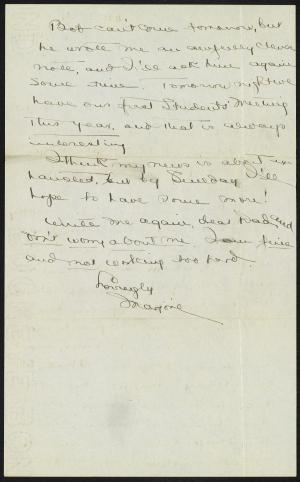 Bob can't come tomorrow, but
he wrote me an awfully clever
note, and I'll ask him again
some time. Tomorrow night we
have our first Students' Meeting
this year, and that is always
interesting
I think my news is about ex-
hausted, but by Sunday I'll
hope to have some more!
Write me again, dear Dad, and
don't worry about me. I am fine
and not working too hard.
Lovingly
Marjorie